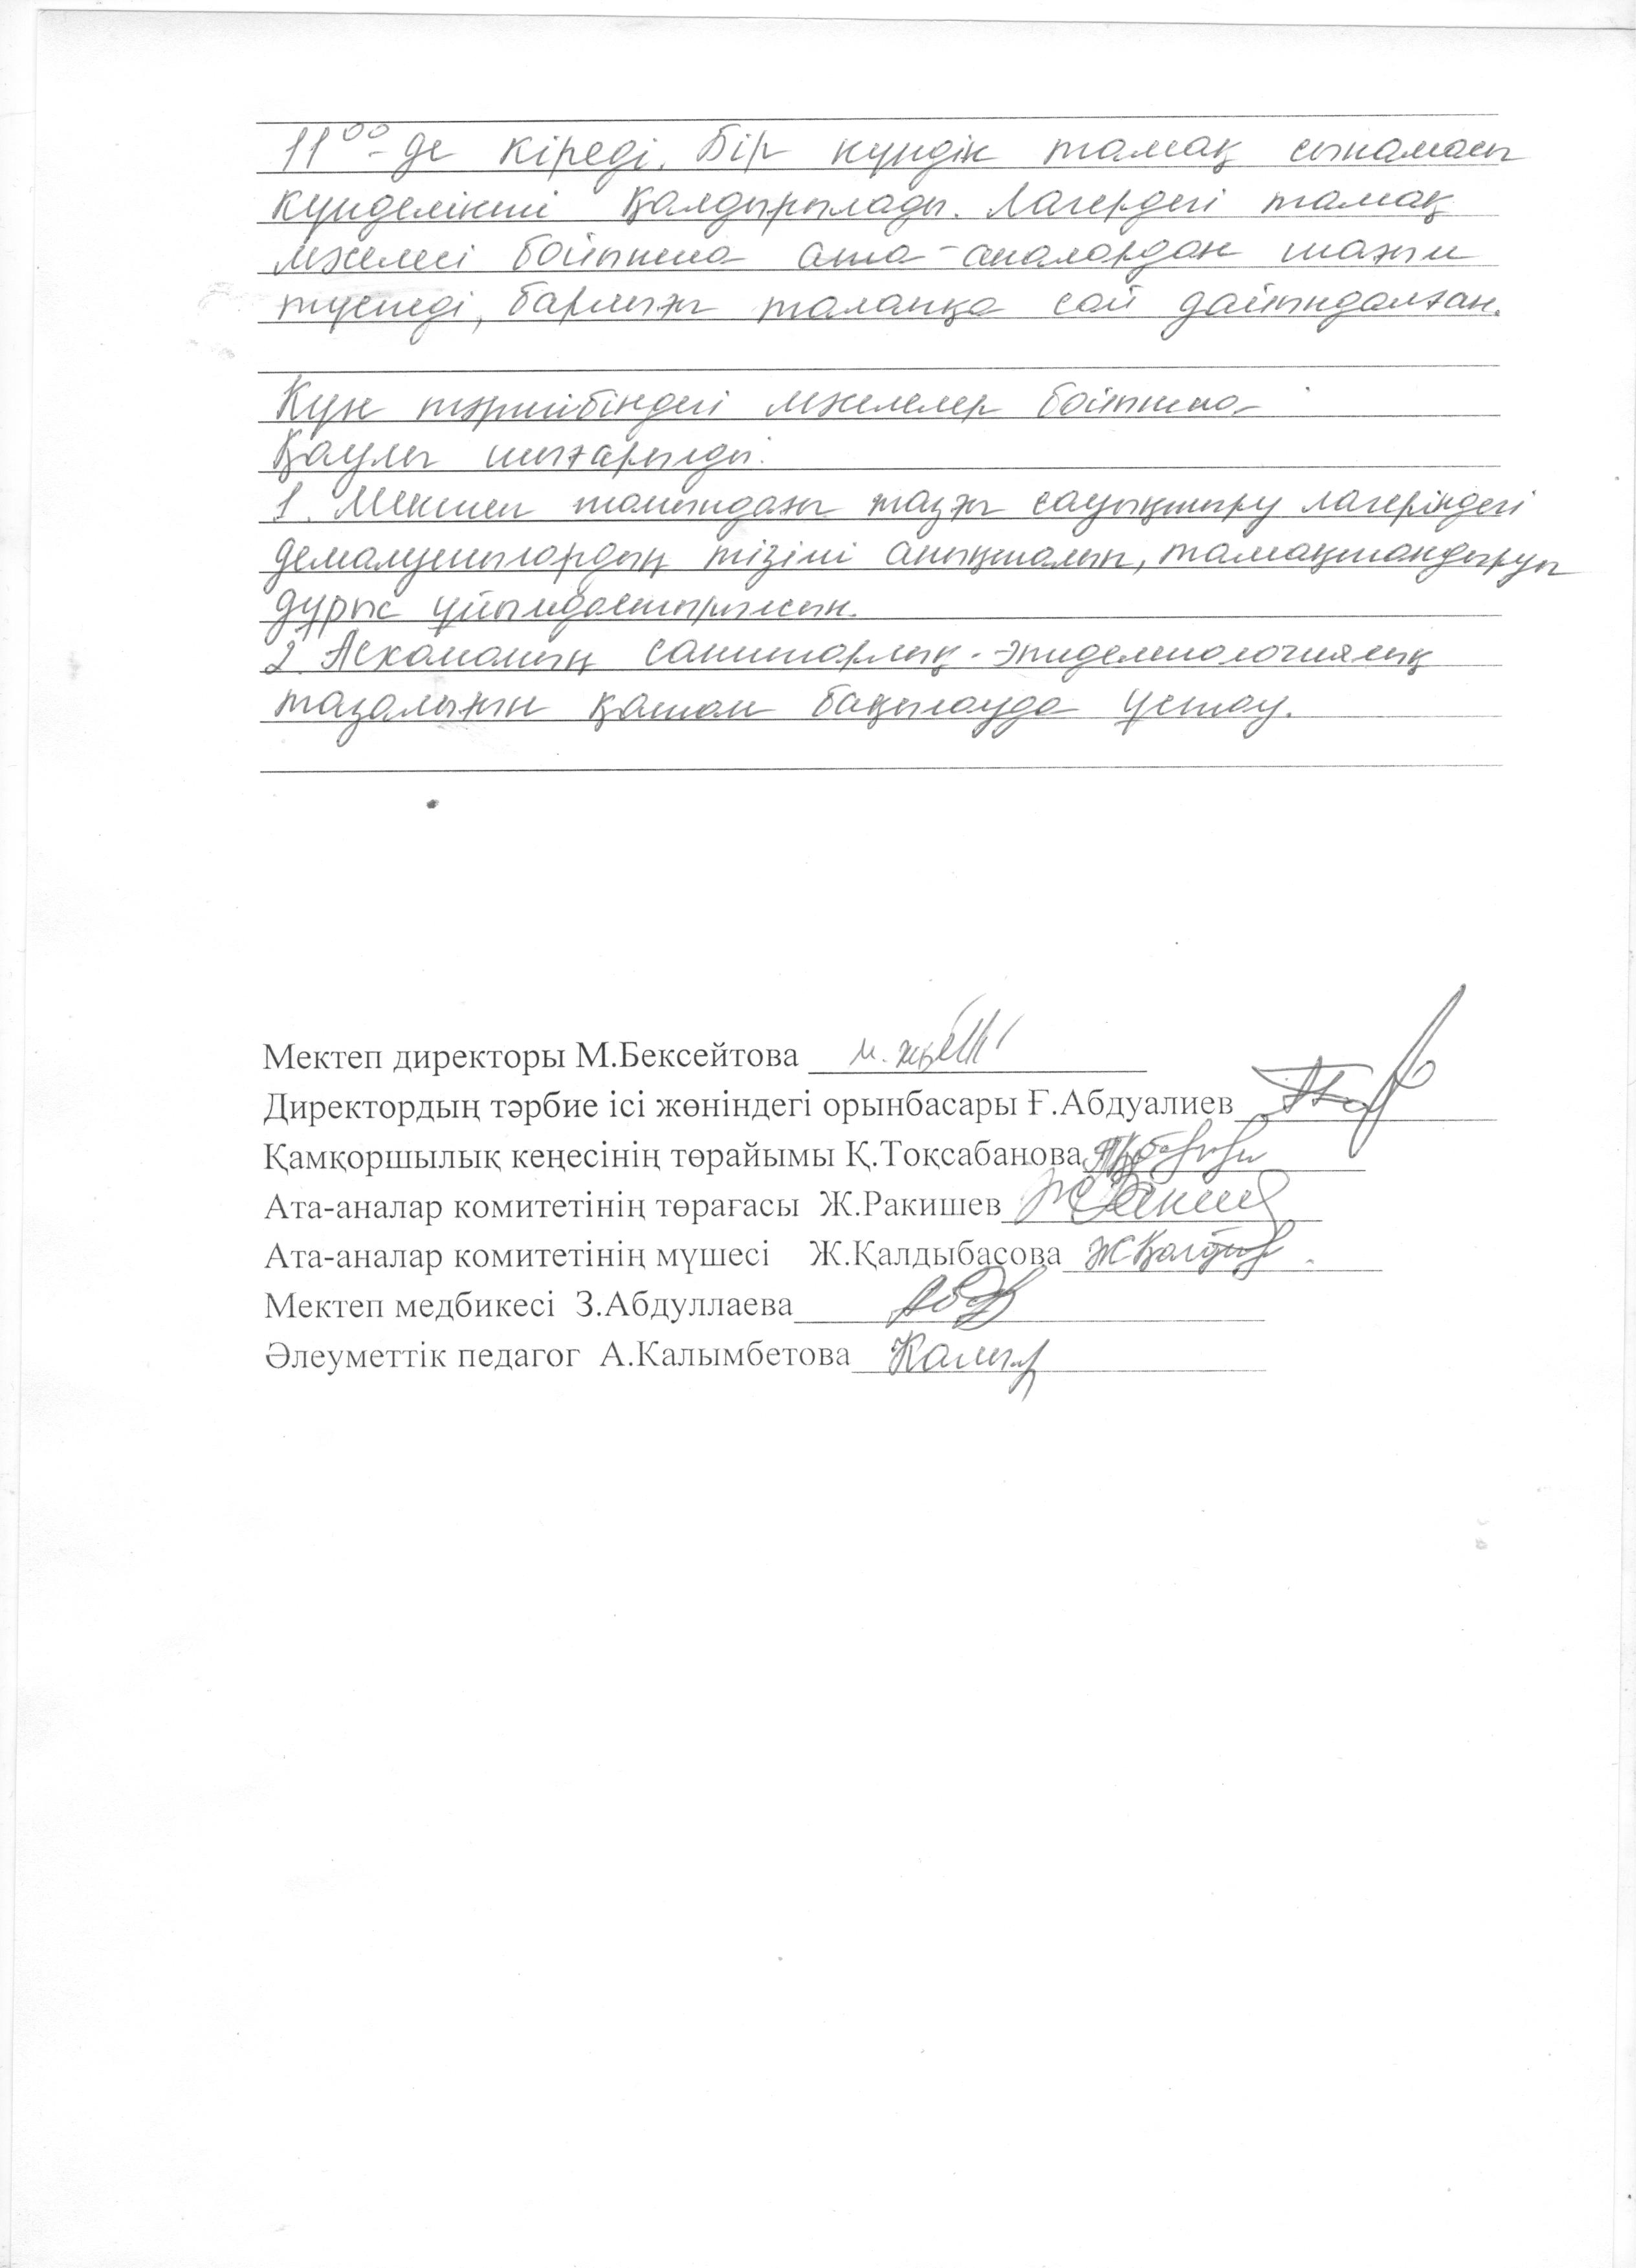 11⁰⁰-де кіреді. Бір күндік тамақ сынамасы
күнделікті қалдырылады. Лагердегі тамақ
мәселесі бойынша ата-аналардан шағым
түспеді, барлығы талапқа сай дайындалған.
Күн тәртібіндегі мәселелер бойынша
Қаулы шығарылды.
1. Мектеп жанындағы жазғы сауықтыру лагеріндегі
демалушылардың тізімі анықталып, тамақтандыруы
дұрыс ұйымдастырылсын.
2 Асхананың санитарлық-эпидемиологиялық
тазалығын қатаң бақылауда ұстау.
Мектеп директоры М.Бексейтова
Директордың тәрбие ісі жөніндегі орынбасары Ғ.Абдуалиев
Қамқоршылық кеңесінің төрайымы Қ.Тоқсабанова
Ата-аналар комитетінің төрағасы Ж.Ракишев
Ата-аналар комитетінің мүшесі Ж.Қалдыбасова
Мектеп медбикесі З.Абдуллаева
Әлеуметтік педагог А.Калымбетова